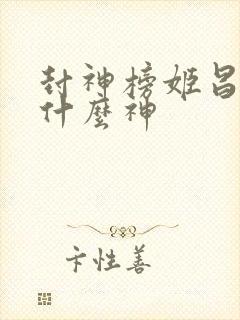 封神榜姬昌
什麼神
卞性善